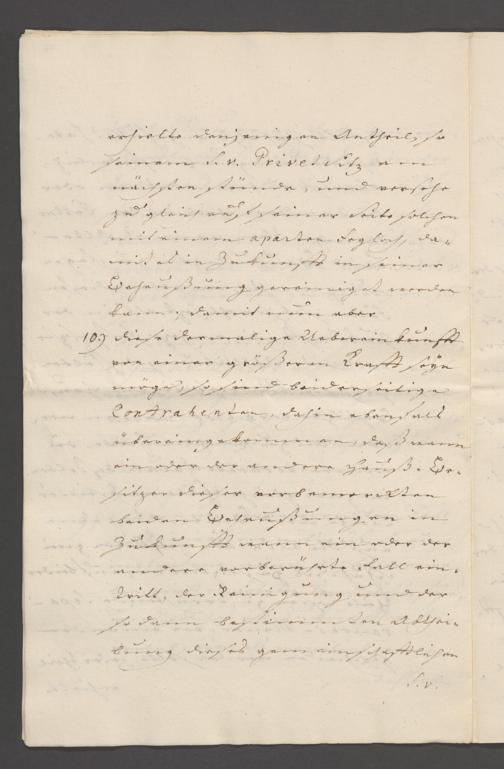 erhielte denjenigen Antheil, so
seinem S. v. Privet Sitz am
nächsten stünde, und versehe
zugleich auf seiner Seite solchen
mit einem aparten Segloch, da-
mit es in Zukunfft in seiner
Behaußung gereiniget werden
kann; damit nun aber
10) diese dermalige Uebereinkunfft
von einer größern Krafft seyn
möge, so sind beiderseitige
Contrahenten, dahin ebenfals
übereingekommen, daß wann
ein oder der andere Hauß-Be-
sitzer dieser vorbemerckten
beiden Behaußungen in
Zukunfft wann ein oder der
andere vorberührte Fall ein-
tritt, der Reinigung und der
so dann bestimmten Abthei-
lung dieses gemeinschafftlichen
S. v.